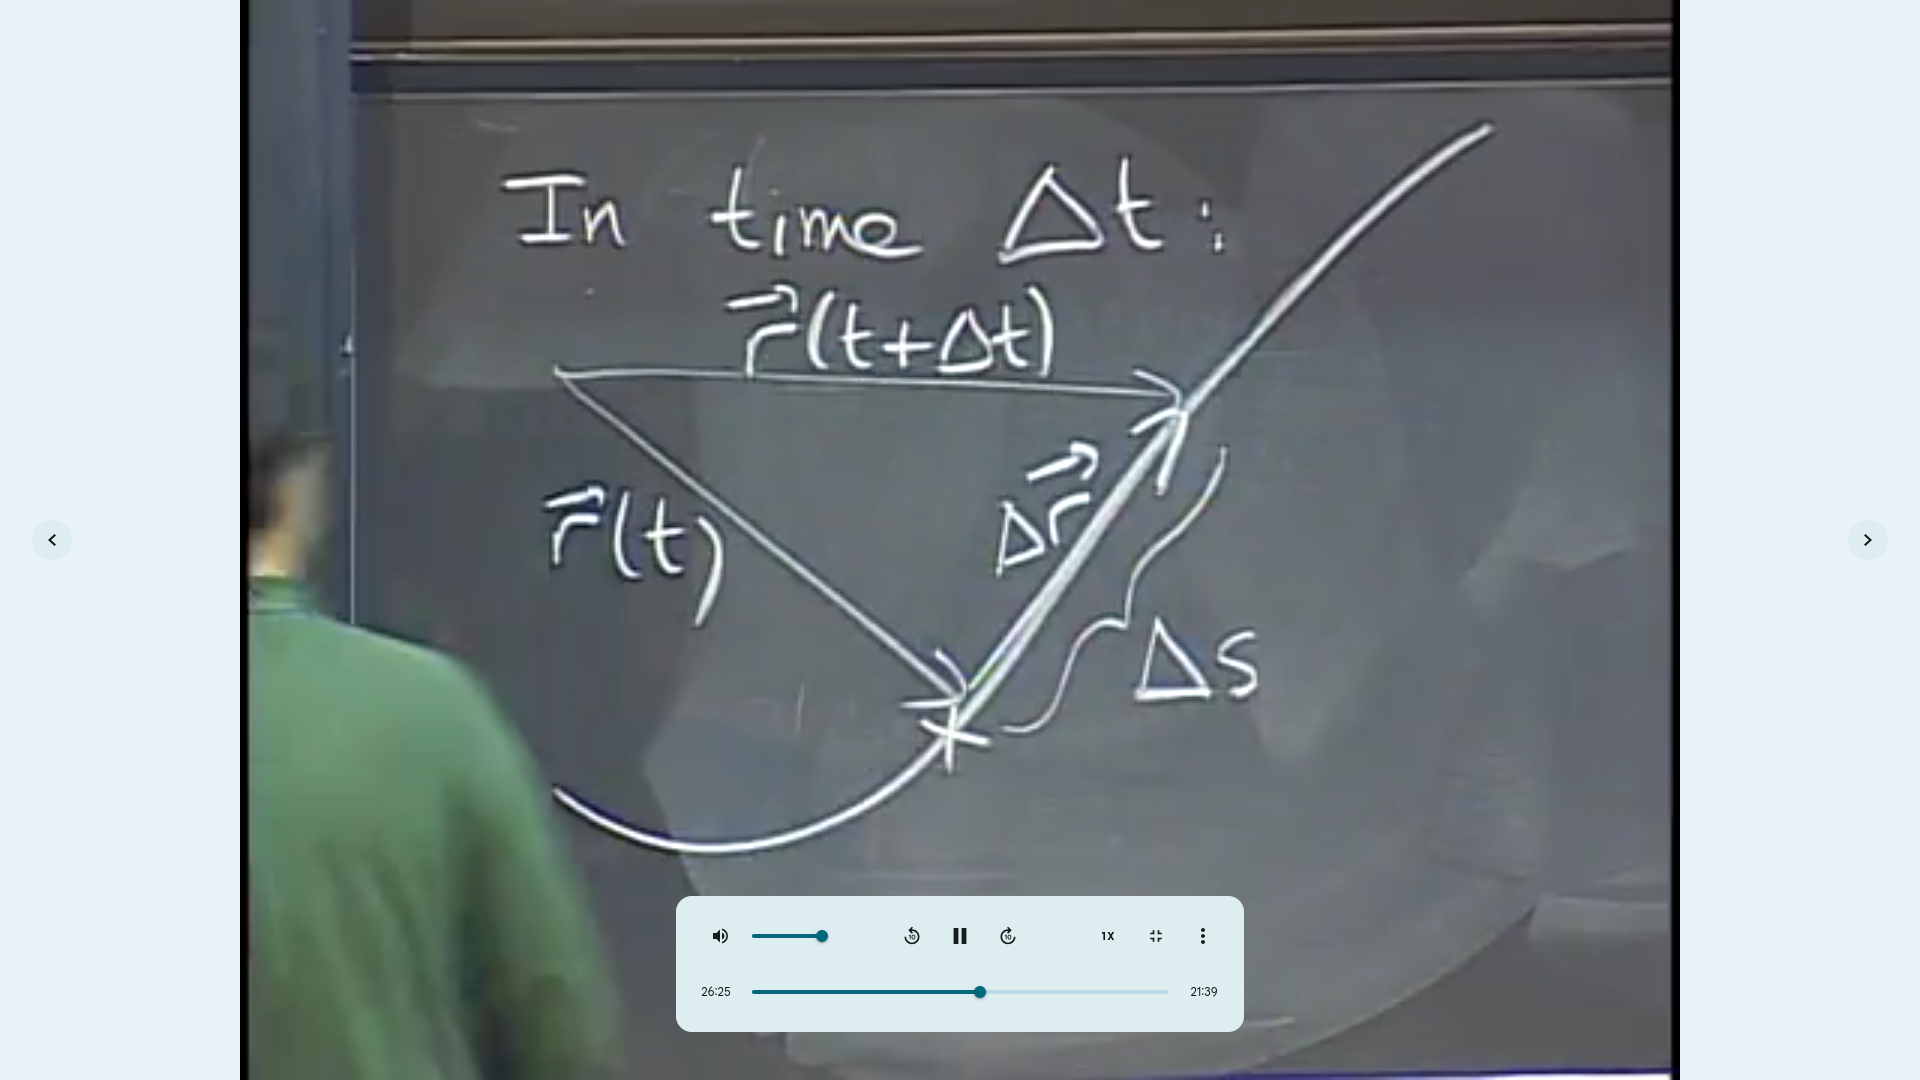 In time Δt:
r⃗(t+Δt)
r⃗(t)
Δr⃗
Δs
10
10
1X
26:25
21:39